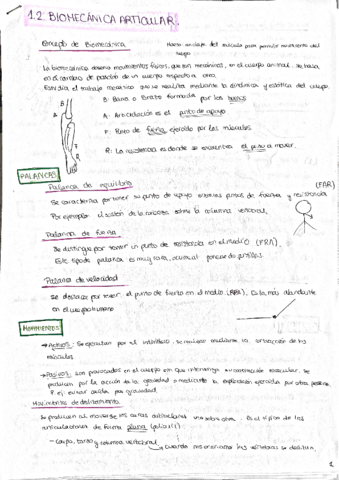 1.2. BIOMECÁNICA ARTICULAR
Concepto de Biomecánica
del músculo para permitir movimiento del
cuerpo
La biomecánica describe movimientos físicos, que son mecánicos, en el cuerpo animal, se basa
en el cambio de posición de un cuerpo respecto a otro.
Estudia el trabajo mecánico que se realiza mediante la dinámica y estática del cuerpo.
B: Barra o Brazo formada por los huesos
A: Articulación es el punto de apoyo
F: Brazo de fuerza ejercido por los músculos.
R: La resistencia es donde se encuentra el peso a mover.
B
A
F
R
PALANCAS
Palanca de equilibrio (FAR)
Se caracteriza por tener su punto de apoyo entre los puntos de fuerza y resistencia
Por ejemplo: el sostén de la cabeza sobre la columna vertebral.
Palanca de fuerza
Se distingue por tener un punto de resistencia en el medio (FRA).
Este tipo de palanca es muy rara, ocurre al ponerse de puntillas.
Palanca de velocidad
Se destaca por tener el punto de fuerza en el medio Es la más abundante
en el cuerpo humano
MOVIMIENTOS
→ Activos: Se ejecutan por el individuo, se realizan mediante la contracción de los
músculos.
→ Pasivos: son provocados en el cuerpo sin que intervenga su contracción muscular. Se
producen por la acción de la gravedad o mediante la exploración ejercida por otra persona.
P. ej: caída por gravedad.
Movimientos de deslizamiento
Se producen al moverse las caras articulares una sobre otra. Es el típico de las
articulaciones de forma plana
- Carpo, tarso y columna vertebral → cuando las vértebras se deslizan.
1